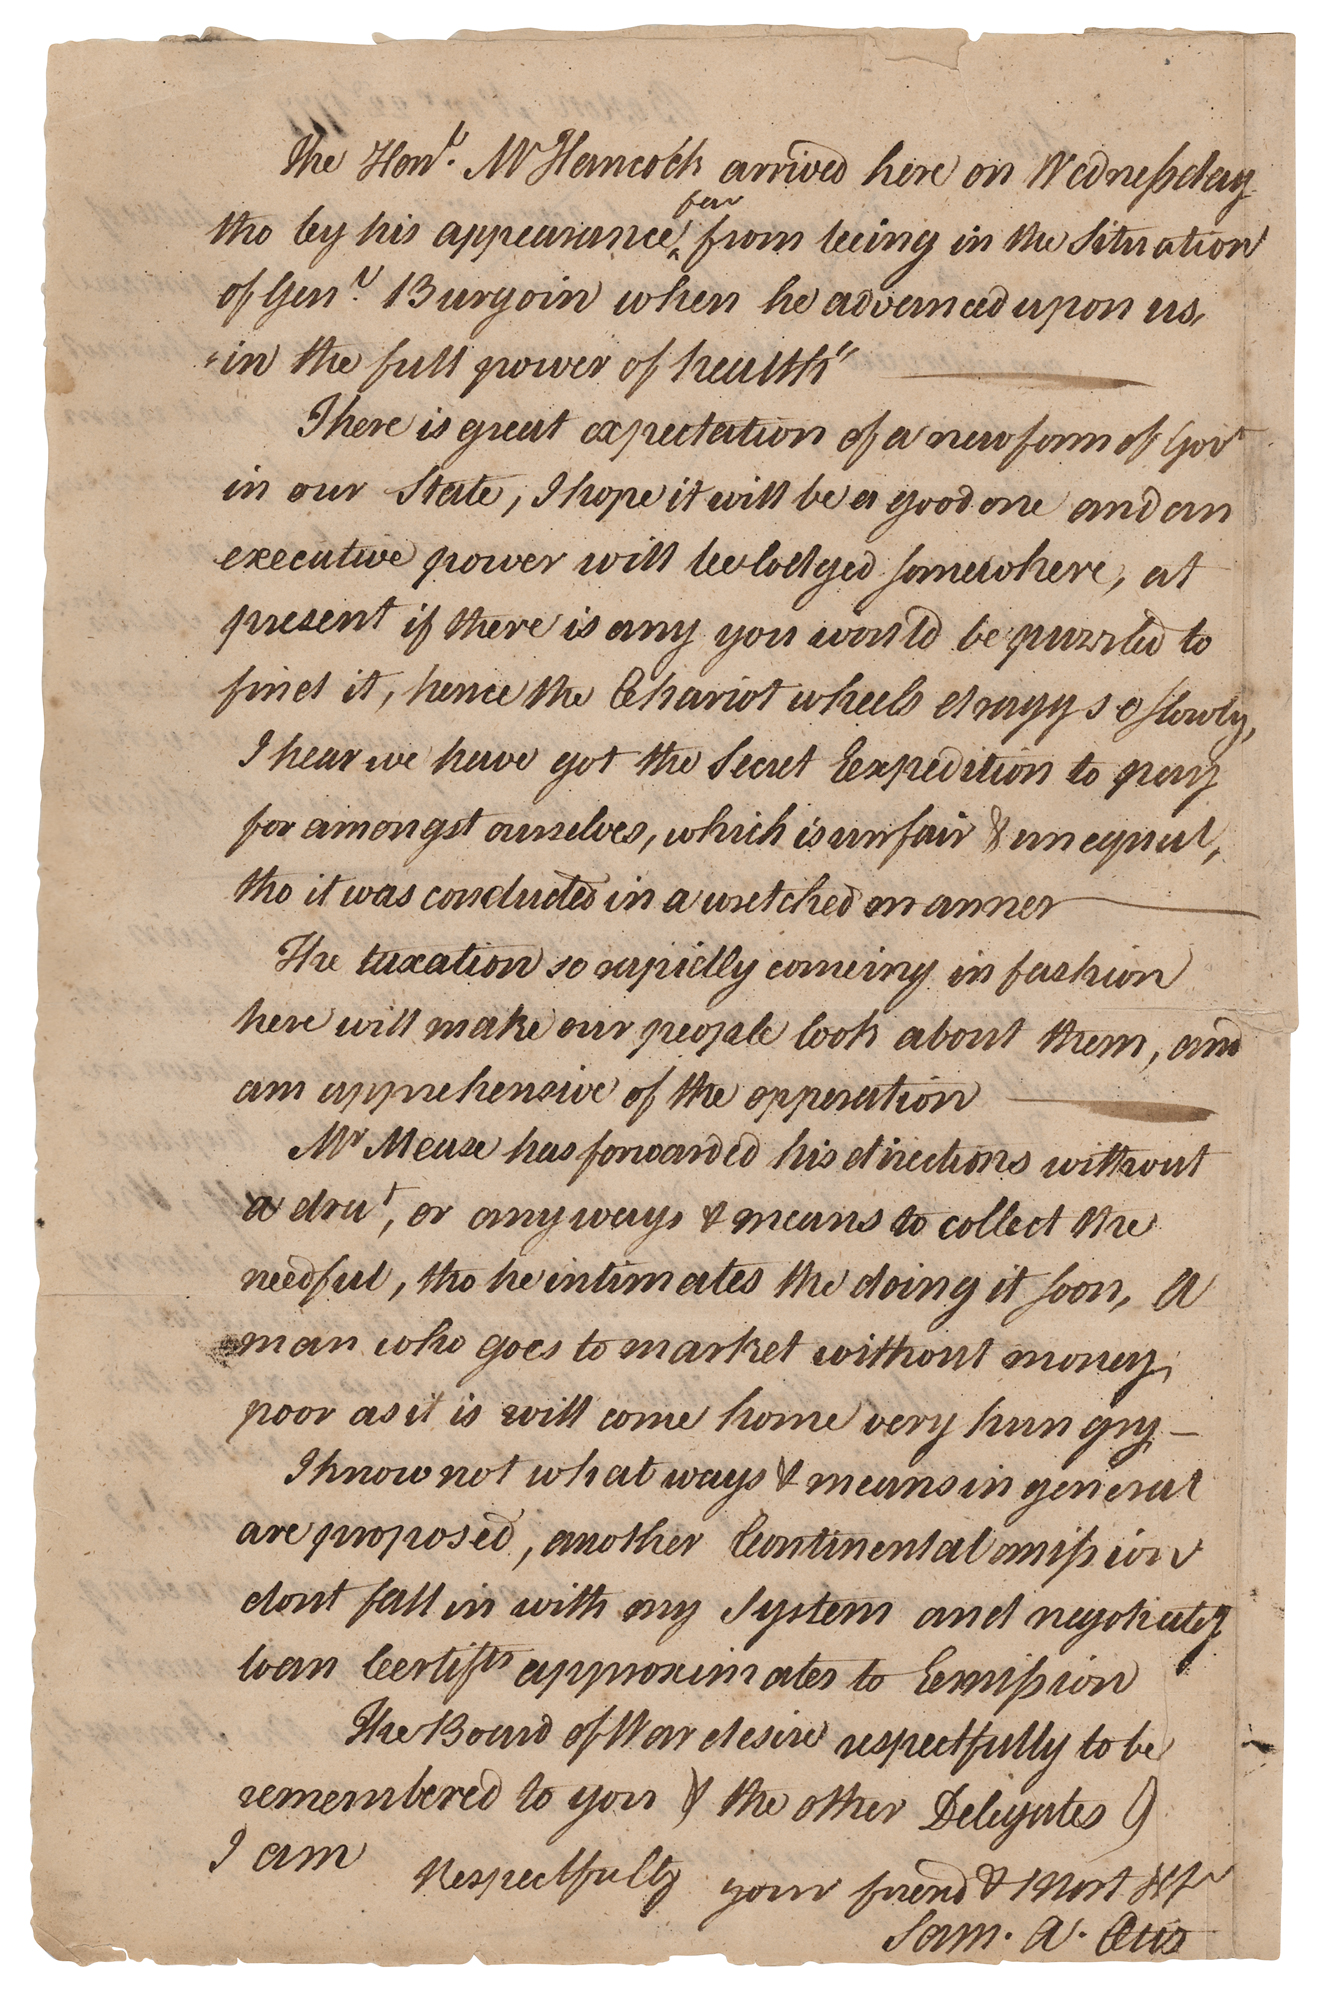 The Hon.l Mr Hancock arrived here on Wednesday
tho by his appearance far from being in the Situation
of Gen.l Burgoin when he advanced upon us,
"in the full power of health"
There is great expectation of a new form of Govt
in our State, I hope it will be a good one and an
executive power will be lodged somewhere, at
present if there is any you would be puzzled to
find it, hence the Chariot wheels dragg so slowly,
I hear we have got the Secret Expedition to pay
for amongst ourselves, which is unfair & unequal,
tho it was conducted in a wretched manner
The taxation so rapidly comeing in fashion
here will make our people look about them, and
am apprehensive of the opperation
Mr Mease has forwarded his directions without
a drat, or any ways & means to collect the
needful, tho he intimates the doing it soon, A
man who goes to market without money,
poor as it is will come home very hungry —
I know not what ways & means in general
are proposed, another Continental omission
dont fall in with my System and negotiateg
loan Certifts approximates to Eemission
The Board of War desire respectfully to be
remembered to you & the other Delegates
I am Respectfully your friend & Most
Sam. A. Otis